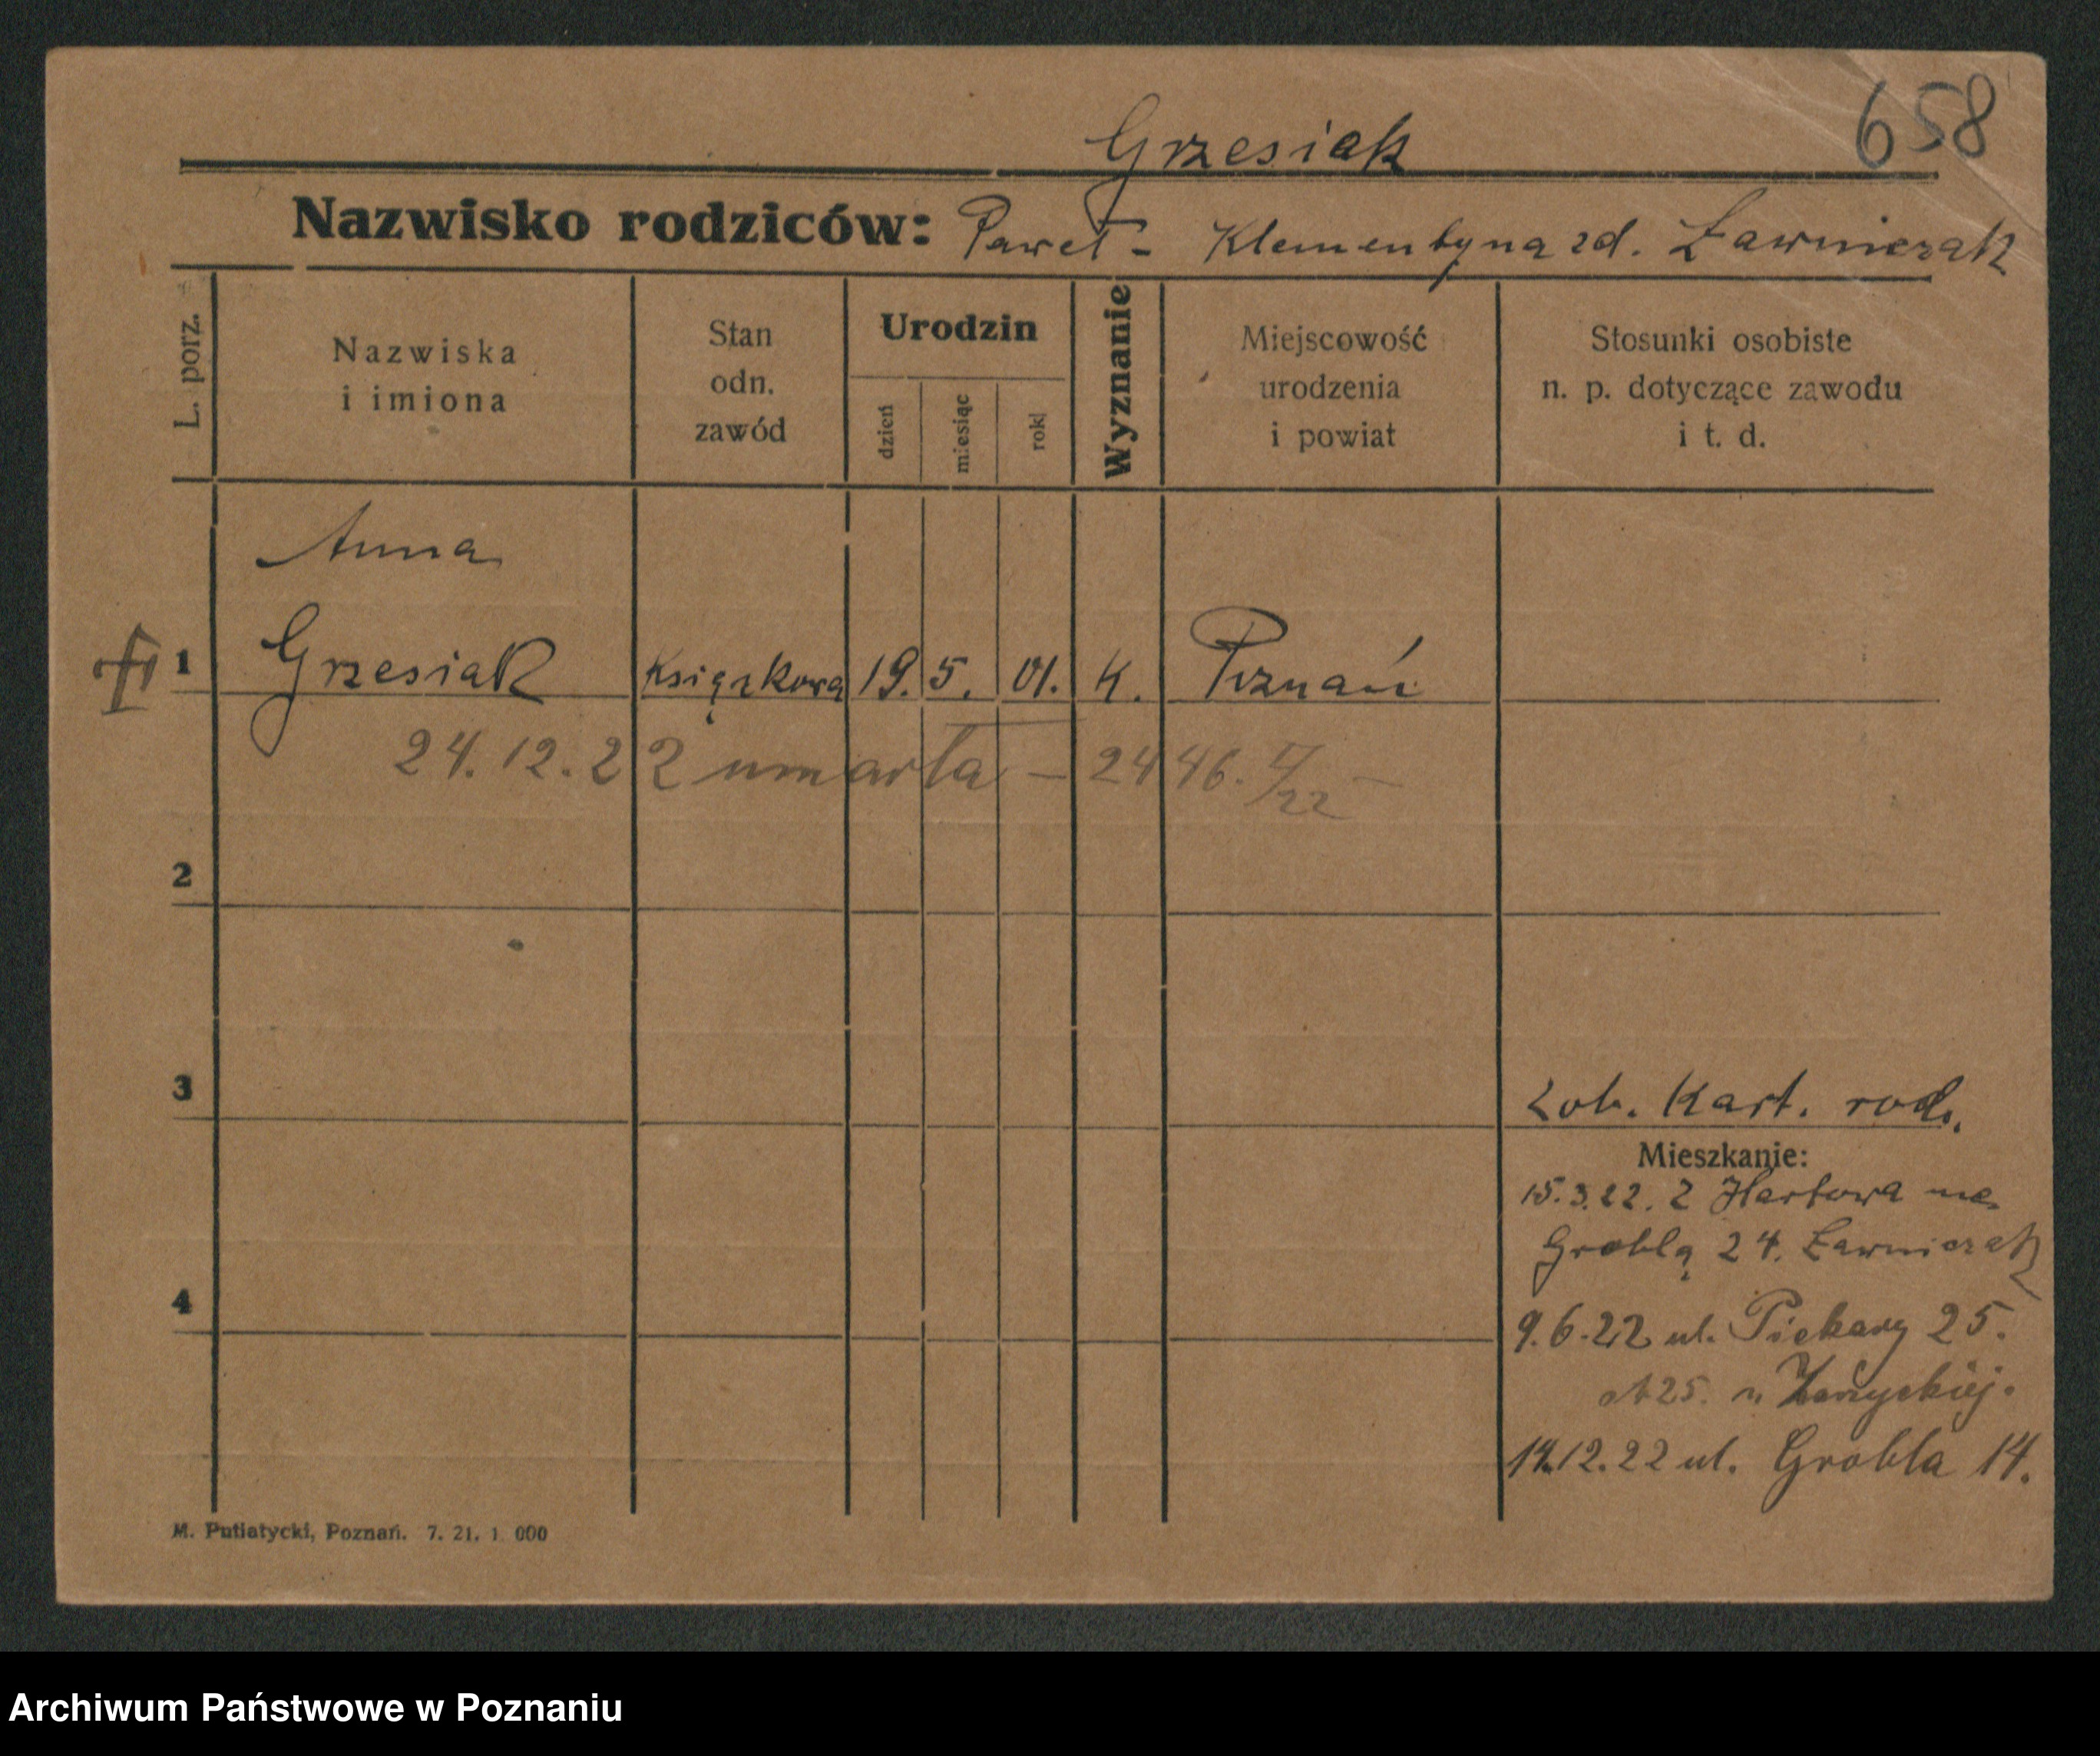 658
Grzesiak
Nazwisko rodziców: Paweł - Klementyna zd. Ławniczak
L. porz.
Nazwiska
i imiona
Stan
odn.
zawód
Urodzin
dzień
miesiąc
rok
Wyznanie
Miejscowość
urodzenia
i powiat
Stosunki osobiste
n. p. dotyczące zawodu
i t. d.
Anna
1 Grzesiak Książkowa 19. 5. 01. K. Poznań
24.12.22 umarła - 2446. /22 -
2
3
Zob. Kart. rodz.
Mieszkanie:
15.3.22. Z Hartowa na
Groblą 24. Ławniczak
4
9.6.22 ul. Piekary 25.
25.
14.12.22 ul. Grobla 14.
M. Putiatycki, Poznań. 7. 21. 1 000
Archiwum Państwowe w Poznaniu